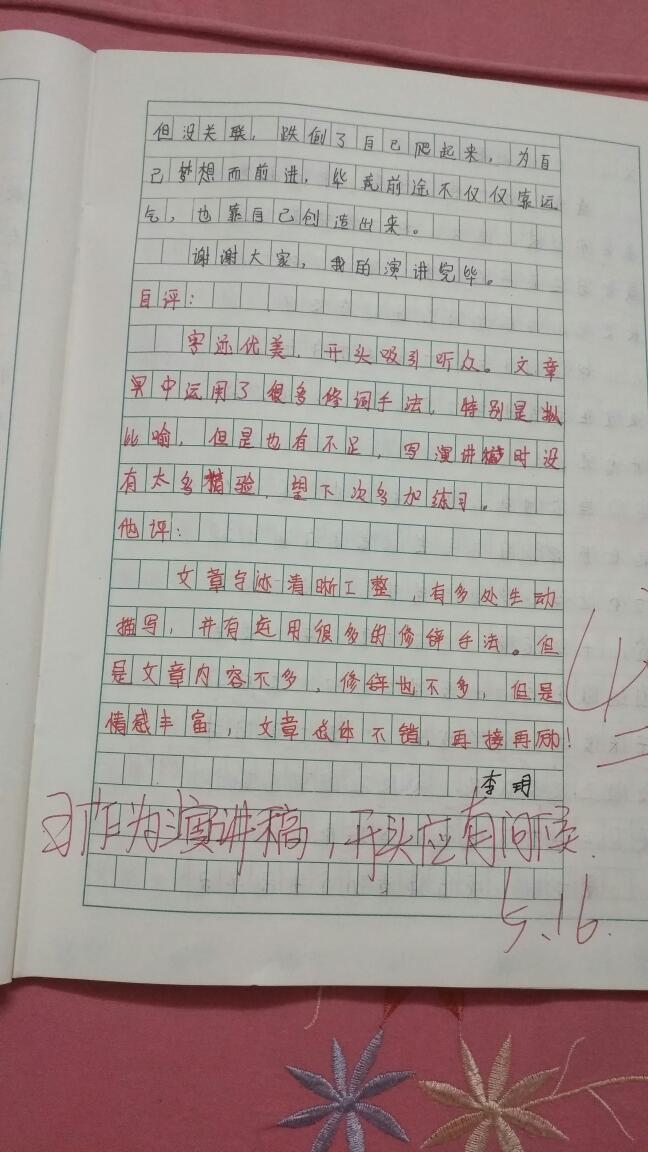 但没关联，跌倒了自己爬起来，为自
己梦想而前进，毕竟前途不仅仅靠运
气，也靠自己创造出来。
谢谢大家，我的演讲完毕。
自评：
字迹优美，开头吸引听众。文章
中运用了很多修词手法，特别是拟
比喻，但是也有不足，写演讲时没
有太多精验，望下次多加练习。
他评：
文章字迹清晰工整，有多处生动
描写，并有运用很多的修辞手法。但
是文章内容不多，修辞也不多，但是
情感丰富，文章总体不错，再接再励！
李玥
作为演讲稿，开头应有问候.
5.16.